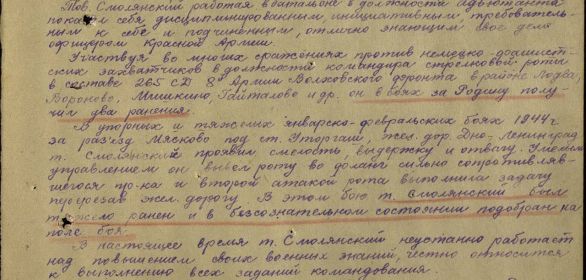 Тов. Смолянский работая в батальоне в должности адъютанта
показал себя, дисциплинированным, инициативным, требователь-
ным к себе и подчиненным, отлично знающим свое дело
офицером Красной Армии.
Участвуя во многих сражениях против немецко-фашист-
ских захватчиков в должности командира стрелковой роты
в составе 265 СД 8 Армии Волховского фронта в районе
Вороново, Мишкино, Гайталово и др. он в боях за Родину полу-
чил два ранения.
В упорных и тяжелых январско-февральских боях 1944 г
за раз'езд Мясково под ст. Уторгаш, жел. дор. Дно-Ленинград
т. Смолянский проявил смелость, выдержку и отвагу. Умелым
управлением он вывел роту во фланг сильно сопротивляв-
шегося пр-ка и второй атакой рота выполнила задачу
перерезав жел. дорогу. В этом бою т. Смолянский был
тяжело ранен и в безсознательном состоянии подобран на
поле боя.
В настоящее время т. Смолянский неустанно работает
над повышением своих военных знаний, честно относится
к выполнению всех заданий командования.